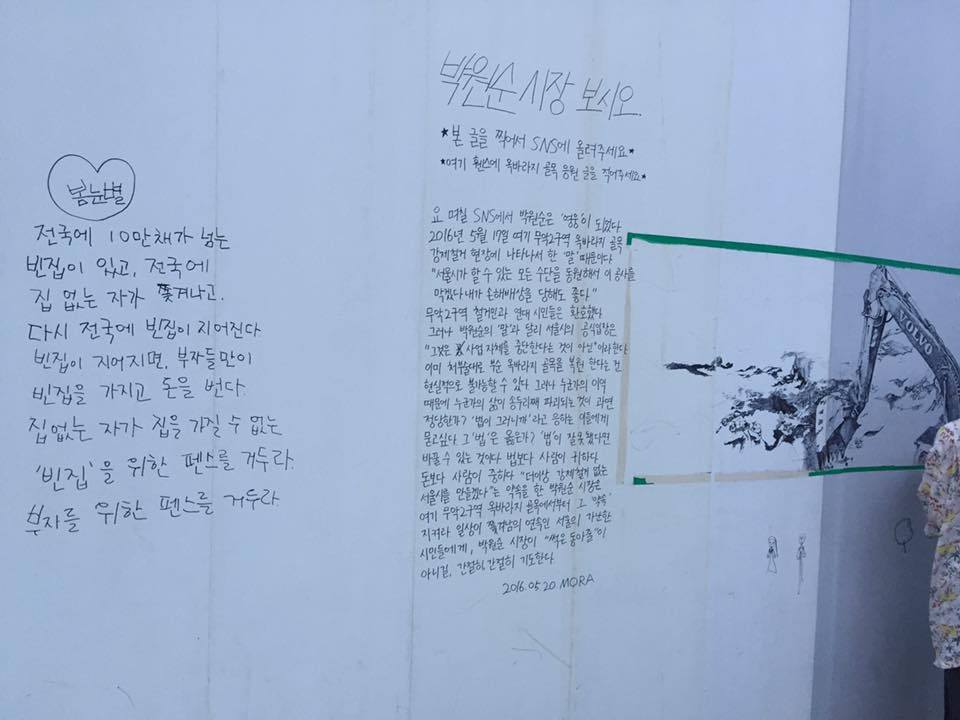 봄눈별
전국에 10만채가 넘는
빈집이 있고, 전국에
집 없는 자가 쫓겨나고.
다시 전국에 빈집이 지어진다
빈집이 지어지면, 부자들만이
빈집을 가지고 돈을 번다.
집없는 자가 집을 가질 수 없는
'빈집'을 위한 펜스를 거두라.
부자를 위한 펜스를 거두라.
박원순 시장 보시오.
*본 글을 찍어서 SNS에 올려주세요*
*여기 휀스에 옥바라지 골목 응원 글을 적어주세요*
요 며칠 SNS에서 박원순은 '영웅'이 되었다
2016년 5월 17일 여기 무악2구역 옥바라지 골목
강제철거 현장에 나타나서 한 '말' 때문이다
"서울시가 할 수 있는 모든 수단을 동원해서 이 공사를
막겠다 내가 손해배상을 당해도 좋다"
무악2구역 철거민과 연대 시민들은 환호했다
그러나 박원순의 '말'과 달리 서울시의 공식입장은
"그것은 사업 자체를 중단한다는 것이 아닌"이라 한다
이미 쳐부술대로 부순 옥바라지 골목을 복원 한다는 건
현실적으로 불가능할 수 있다 그러나 누군가의 이익
때문에 누군가의 삶이 송두리째 파괴되는것이 과연
정당한가? '법이 그러니까'라고 응하는 이들에게
묻고싶다 그 '법'은 옳은가? '법'이 잘못됐다면
바꿀 수 있는 것이다 법보다 사람이 귀하다
돈보다 사람이 중하다 "더이상 강제철거 없는
서울시를 만들겠다"는 약속을 한 박원순 시장은
여기 무악2구역 옥바라지 골목에서부터 그 '약속'
지켜라 일상이 쫓겨남의 연속인 서울의 가난한
시민들에게, 박원순 시장이 "썩은 동아줄"이
아니길, 간절히, 간절히 기도한다
2016.05.20 MORA
VOLVO